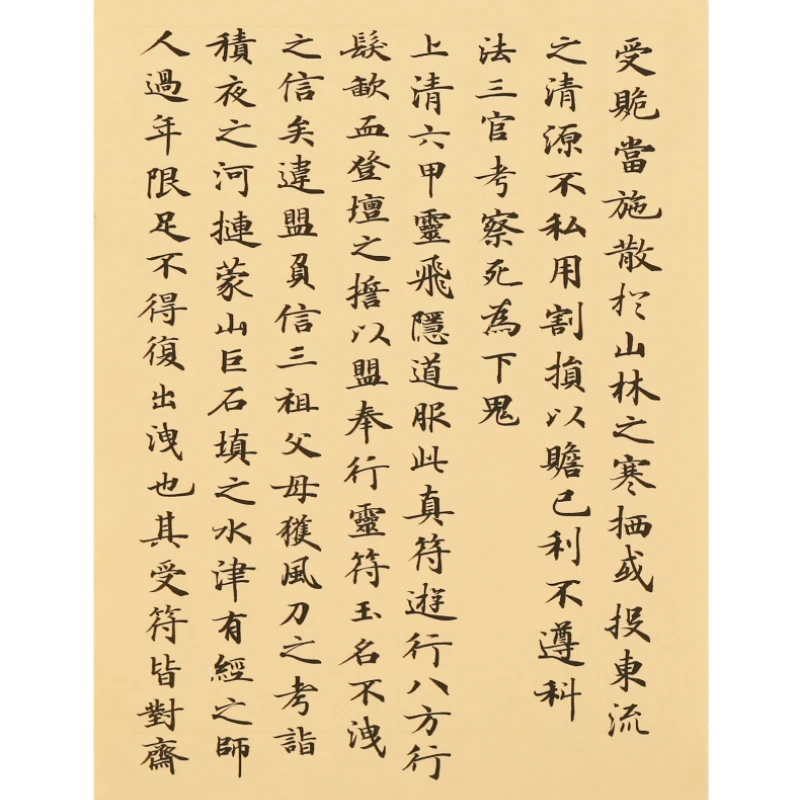 受賝當施散於山林之寒栖或投東流
之清源不私用割損以贍己利不遵科
法三官考察死為下鬼
上清六甲靈飛隱道服此真符遊行八方行
髮歃血登壇之擔以盟奉行靈符玉名不洩
之信矣違盟負信三祖父母獲風刀之考詣
積夜之河摙蒙山巨石填之水津有經之師
人過年限足不得復出洩也其受符皆對齋